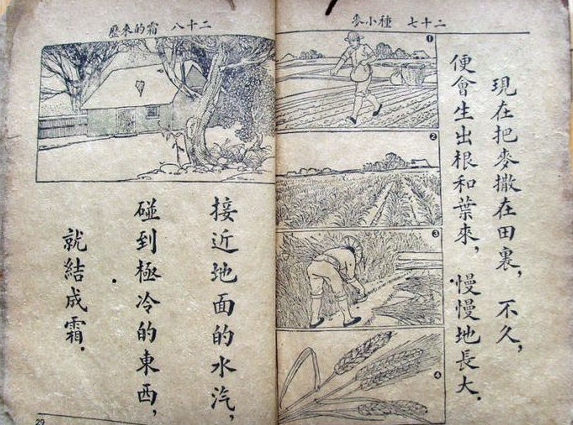 二十七 種小麥
現在把麥撒在田裏, 不久,
便會生出根和葉來, 慢慢地長大.
❶
❷
❸
❹
二十八 霜的來歷
接近地面的水汽,
碰到極冷的東西,
就結成霜.